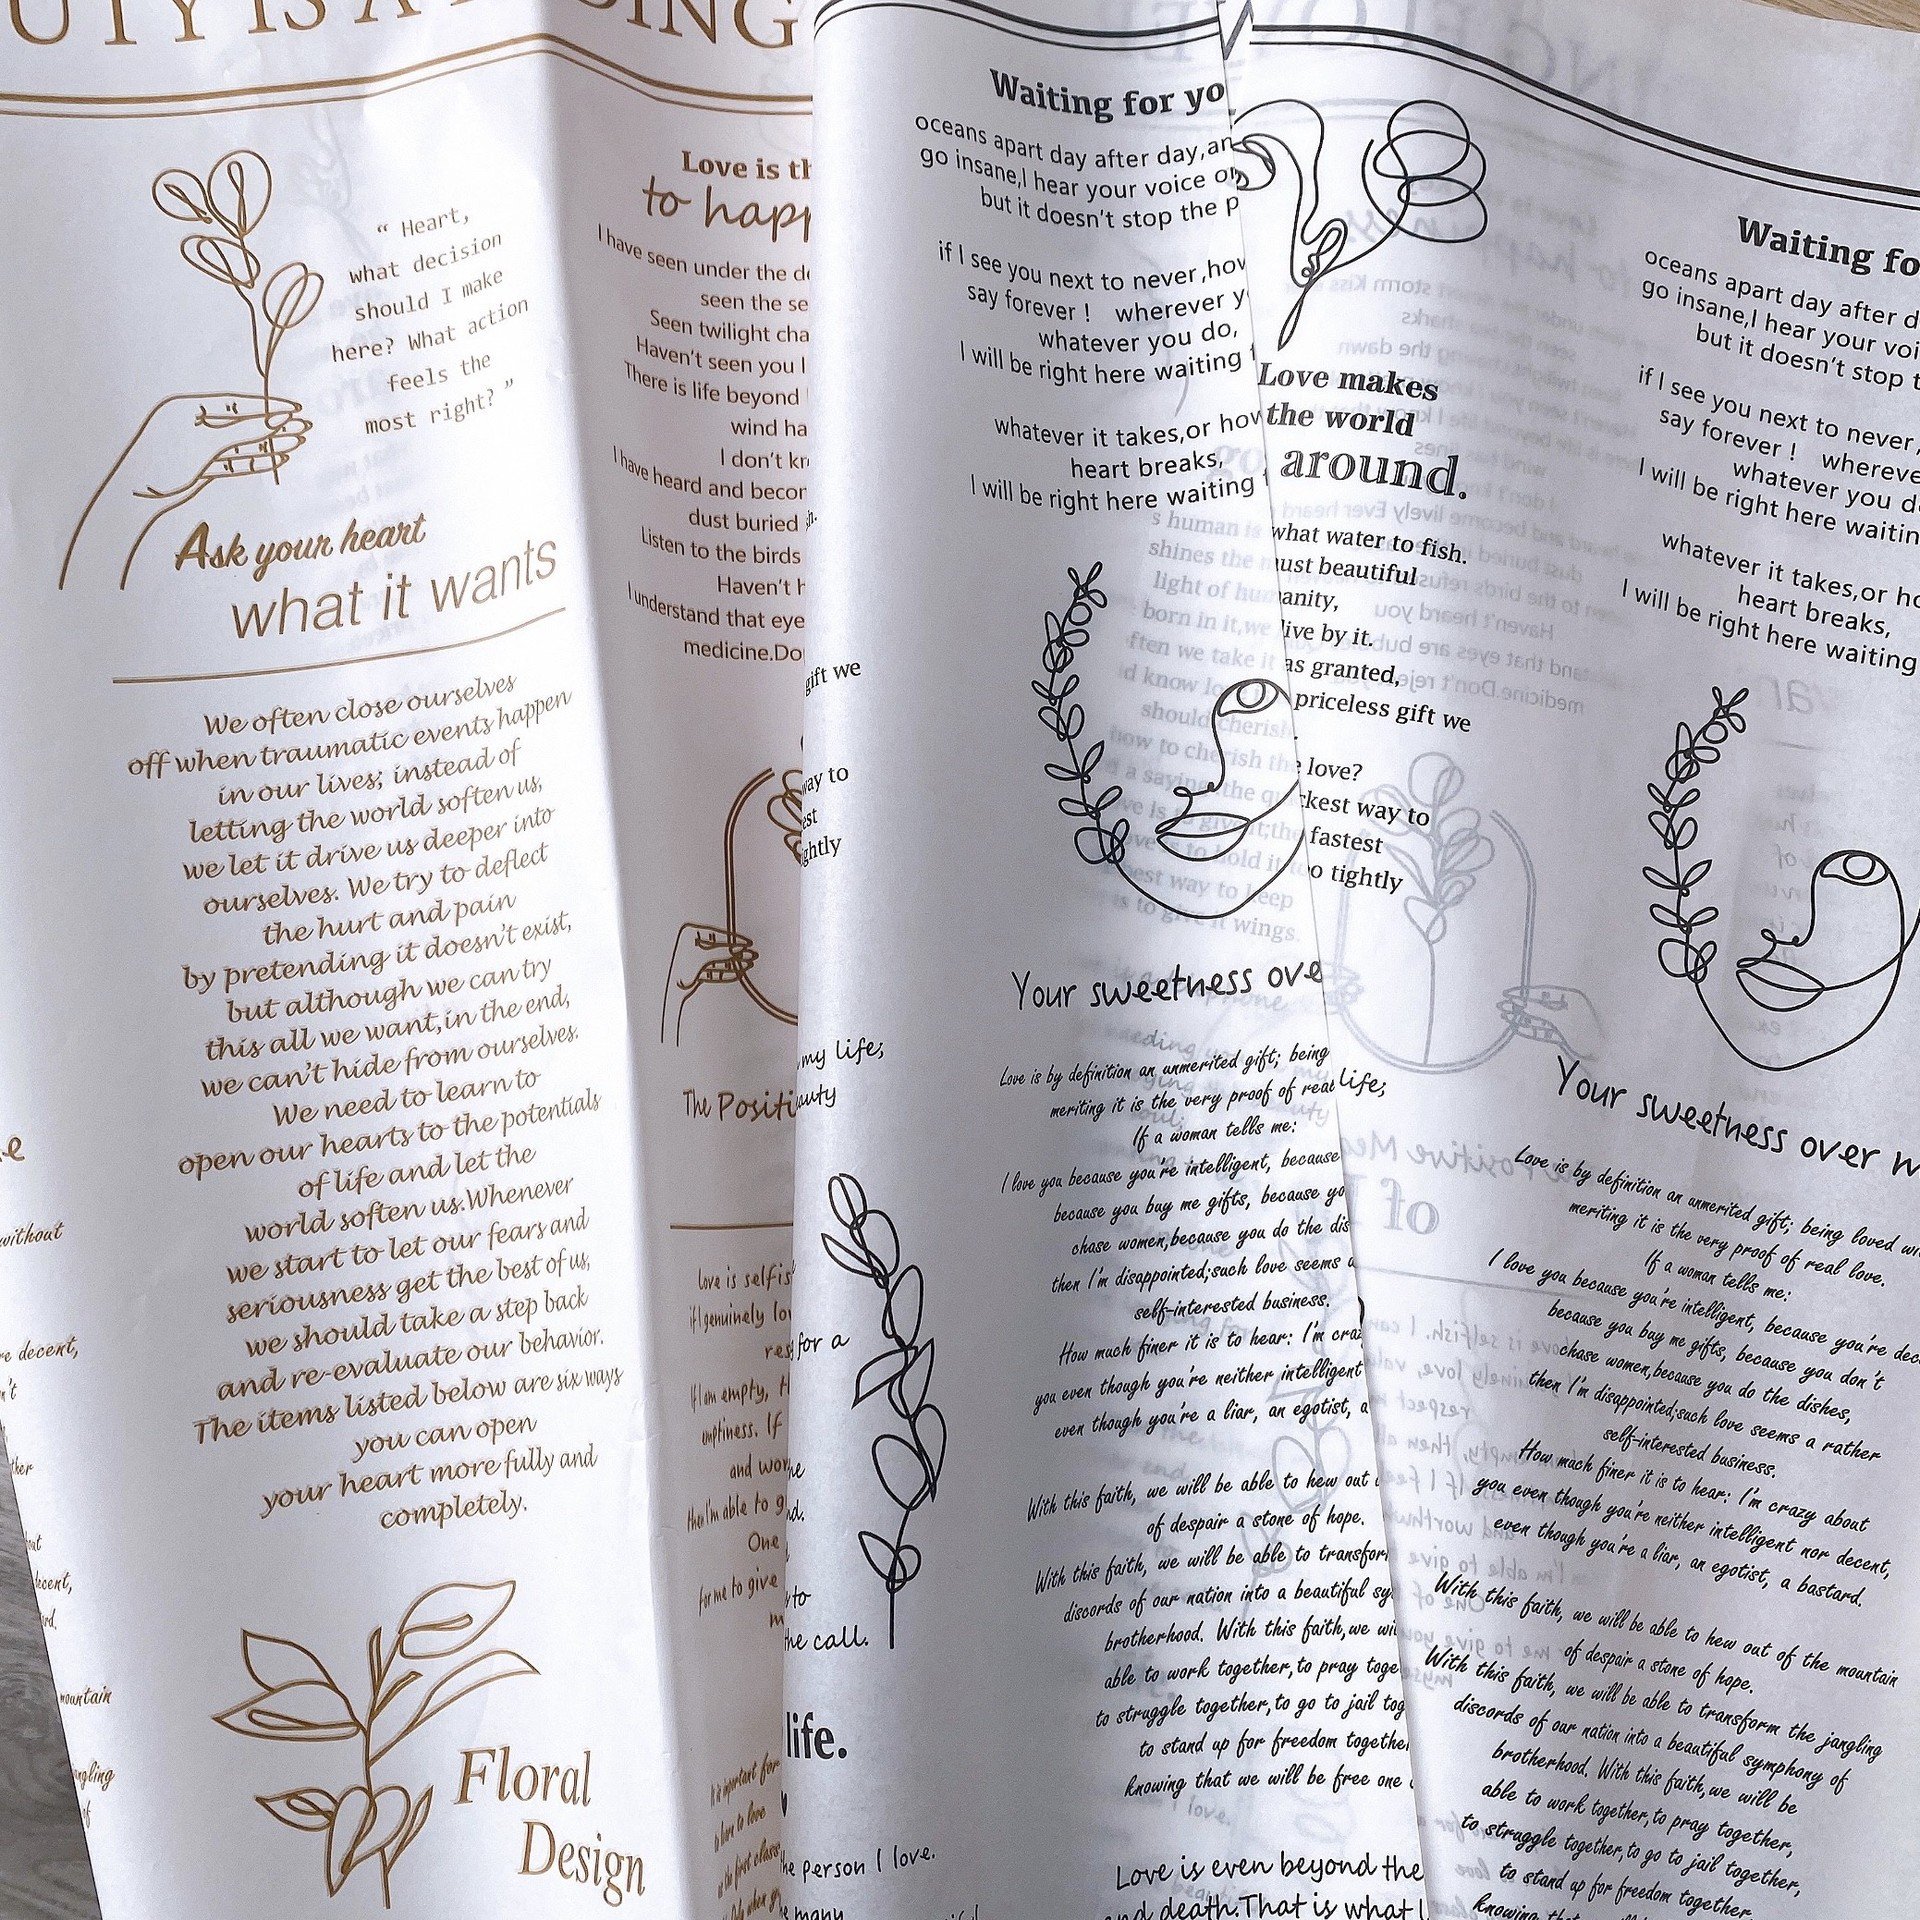 UTY IS A
ING
“ Heart,
what decision
should I make
here? What action
feels the
most right? ”
Ask your heart
what it wants
We often close ourselves
off when traumatic events happen
in our lives; instead of
letting the world soften us,
we let it drive us deeper into
ourselves. We try to deflect
the hurt and pain
by pretending it doesn't exist,
but although we can try
this all we want,in the end,
we can't hide from ourselves.
We need to learn to
open our hearts to the potentials
of life and let the
world soften us.Whenever
we start to let our fears and
seriousness get the best of us,
we should take a step back
and re-evaluate our behavior.
The items listed below are six ways
you can open
your heart more fully and
completely.
Floral
Design
without
decent,
mountain
Love is th
to happ
I have seen under the de
seen the se
Seen twilight cha
Haven't seen you l
There is life beyond
wind ha
I don't kn
I have heard and becor
dust buried
Listen to the birds
Haven't h
I understand that eye
medicine.Do
The Positi
love is selfis
if I genuinely lo
res
If I am empty, th
emptiness. If
and wor
then I'm able to g
One
for me to give
m
It is important for
is love to love
at the first class
gift we
way to
est
ightly
my life;
auty
for a
to
the call.
life.
the person I love.
many
Waiting for yo
oceans apart day after day,an
go insane,I hear your voice on
but it doesn't stop the p
if I see you next to never,how
say forever ! wherever y
whatever you do,
I will be right here waiting f
whatever it takes,or how
heart breaks,
I will be right here waiting f
Your sweetness ove
Love is by definition an unmerited gift; being
meriting it is the very proof of real
If a woman tells me:
I love you because you're intelligent, because
because you buy me gifts, because yo
chase women,because you do the dis
then I'm disappointed;such love seems a
self-interested business.
How much finer it is to hear: I'm craz
you even though you're neither intelligent
even though you're a liar, an egotist, a
With this faith, we will be able to hew out
of despair a stone of hope.
With this faith, we will be able to transfor
discords of our nation into a beautiful sy
brotherhood. With this faith,we wi
able to work together,to pray toge
to struggle together,to go to jail tog
to stand up for freedom together
knowing that we will be free one
Love is even beyond the
and death.That is what l
Love makes
the world
around.
what water to fish.
ust beautiful
anity,
live by it.
as granted,
priceless gift we
love?
ckest way to
fastest
oo tightly
life;
Waiting fo
oceans apart day after d
go insane,I hear your voi
but it doesn't stop t
if I see you next to never,
say forever ! whereve
whatever you do
I will be right here waitin
whatever it takes,or ho
heart breaks,
I will be right here waiting
Your sweetness over w
Love is by definition an unmerited gift; being loved wi
meriting it is the very proof of real love.
If a woman tells me:
I love you because you're intelligent, because you're dec
because you buy me gifts, because you don't
chase women,because you do the dishes,
then I'm disappointed;such love seems a rather
self-interested business.
How much finer it is to hear: I'm crazy about
you even though you're neither intelligent nor decent,
even though you're a liar, an egotist, a bastard.
With this faith, we will be able to hew out of the mountain
of despair a stone of hope.
With this faith, we will be able to transform the jangling
discords of our nation into a beautiful symphony of
brotherhood. With this faith,we will be
able to work together,to pray together,
to struggle together,to go to jail together,
to stand up for freedom together
knowing that